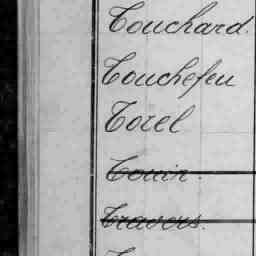 Touchard.
Touchefeu
Torel
Touin.
Travers.